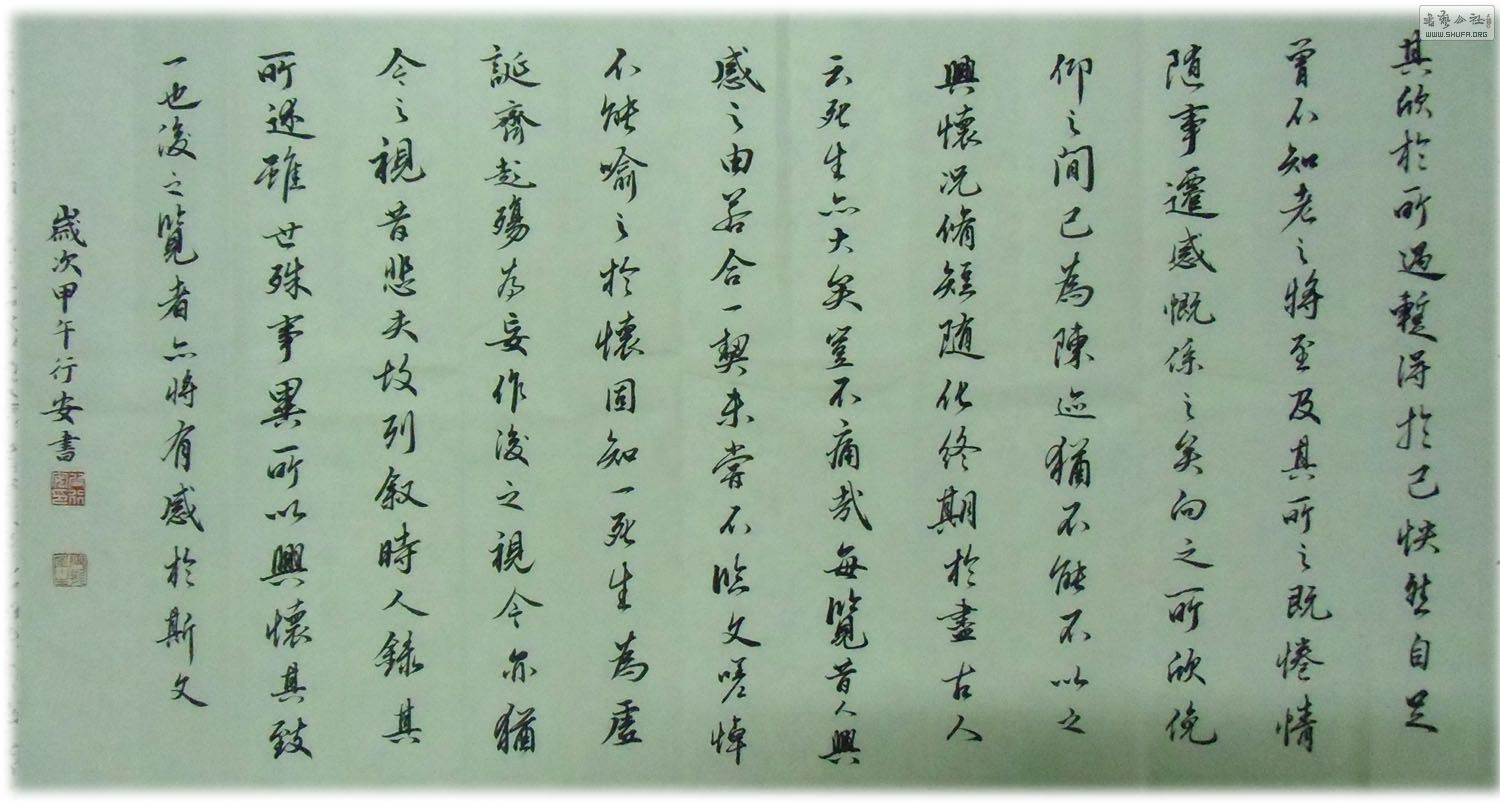 其欣於所遇暫得於己怏然自足
曾不知老之將至及其所之既惓情
随事遷感慨係之矣向之所欣俛
仰之間已為陳迹猶不能不以之
興懷况脩短随化終期於盡古人
云死生亦大矣豈不痛哉每覽昔人興
感之由若合一契未嘗不臨文嗟悼
不能喻之於懷固知一死生為虛
誕齊彭殤為妄作後之視今亦猶
今之視昔悲夫故列叙時人錄其
所述雖世殊事異所以興懷其致
一也後之覽者亦將有感於斯文
歲次甲午行安書
書藝公社
WWW.SHUFA.ORG